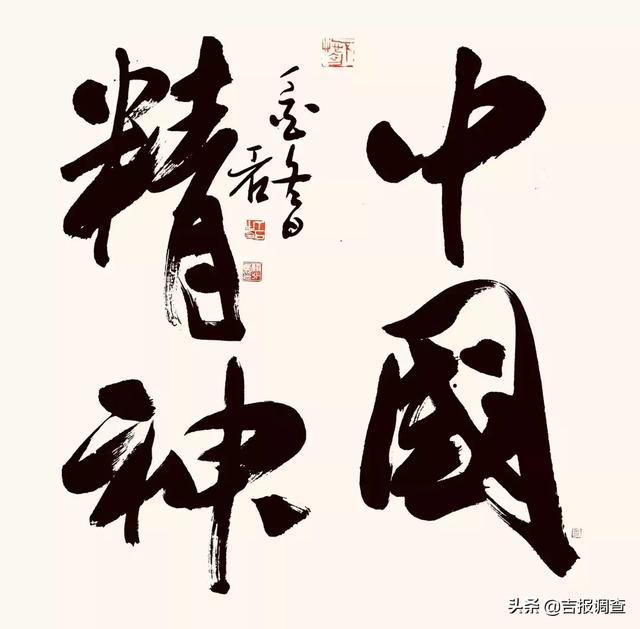 中國
精神
头条 @吉报调查